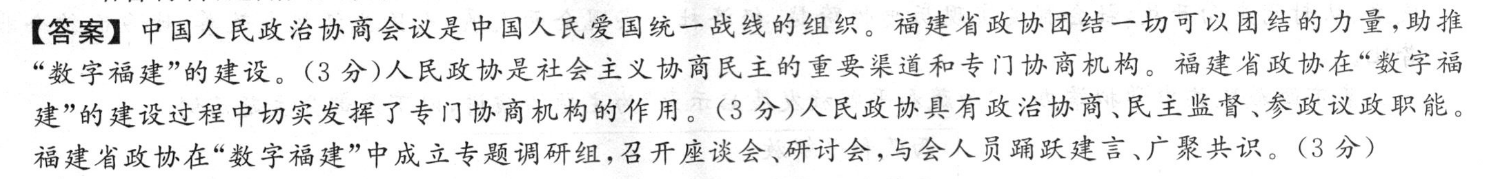 【答案】中国人民政治协商会议是中国人民爱国统一战线的组织。福建省政协团结一切可以团结的力量,助推
“数字福建”的建设。(3 分)人民政协是社会主义协商民主的重要渠道和专门协商机构。福建省政协在“数字福
建”的建设过程中切实发挥了专门协商机构的作用。(3 分)人民政协具有政治协商、民主监督、参政议政职能。
福建省政协在“数字福建”中成立专题调研组,召开座谈会、研讨会,与会人员踊跃建言、广聚共识。(3 分)